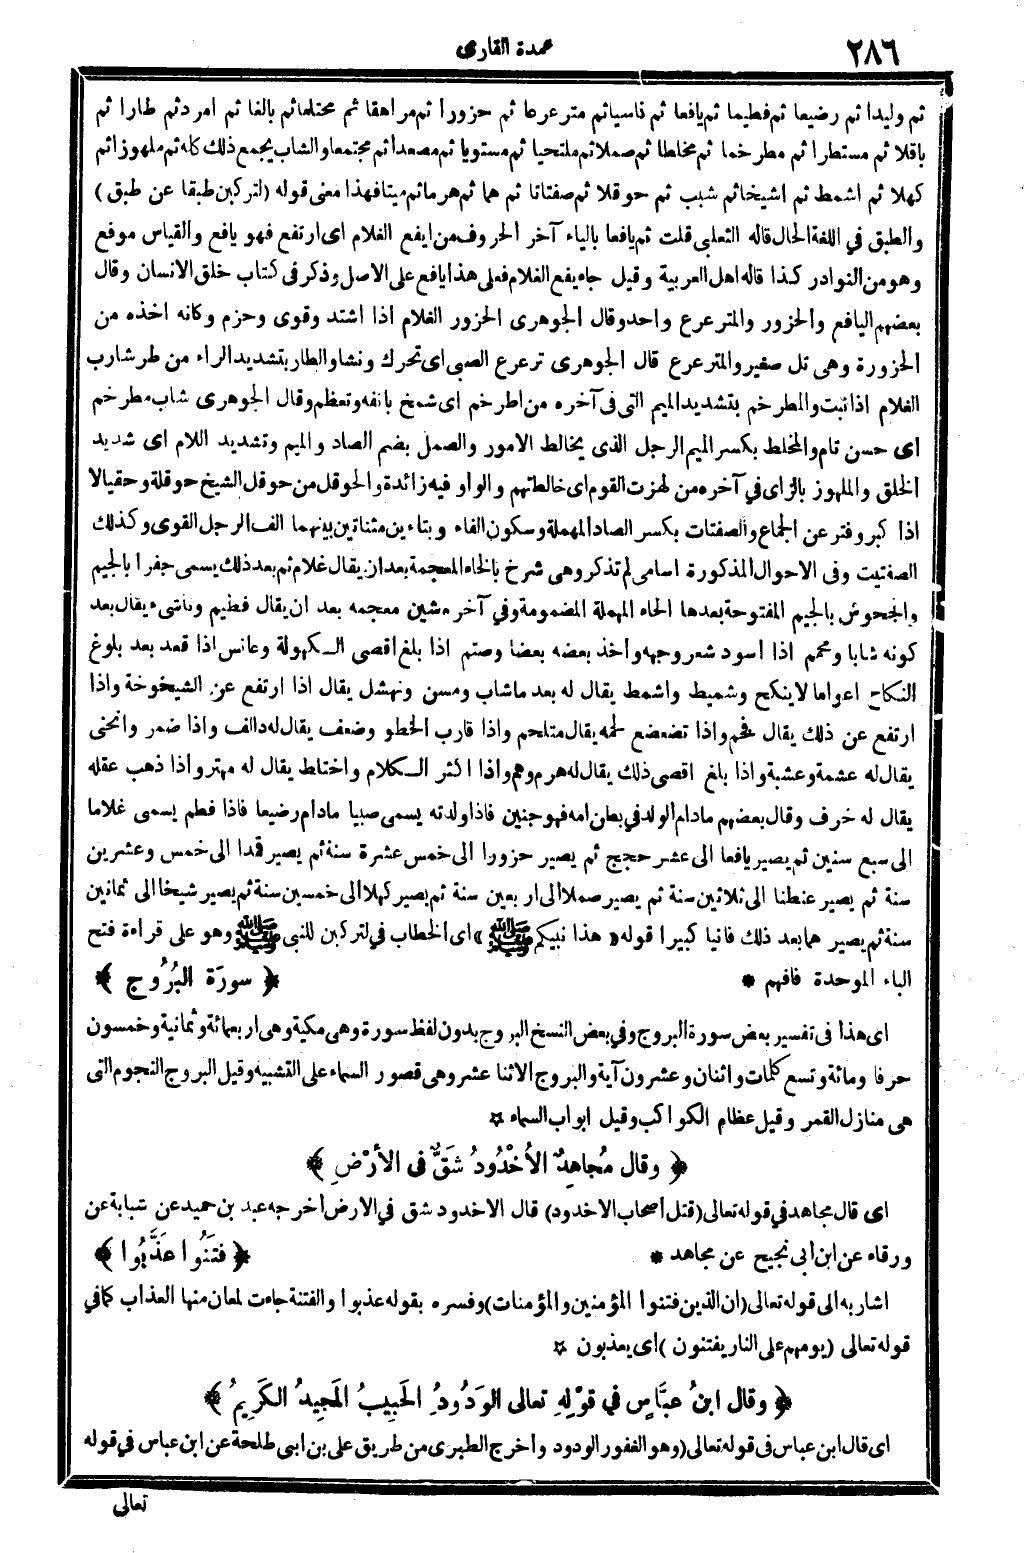 ٢٨٦
عمدة القارى
ثم وليدا ثم رضيعا ثم فطيما ثم يافعا ثم ناسيا ثم مترعرعا ثم حزورا ثم مراهقا ثم محتلما ثم بالغا ثم امرد ثم طارا ثم
باقلا ثم مستطرا ثم مطرخما ثم مخلطا ثم صملا ثم ملتحيا ثم مستويا ثم مصعدا ثم مجتمعا والشاب يجمع ذلك كله ثم ملهوزا ثم
كهلا ثم اشمط ثم اشيخا ثم شبب ثم حوقلا ثم صفتاتا ثم هما ثم هرما ثم ميتا فهذا معنى قوله (لتركبن طبقا عن طبق)
والطبق في اللغة الحال قاله الثعلبي قلت ثم يافعا بالياء آخر الحروف من ايفع الغلام اى ارتفع فهو يافع والقياس موفع
وهو من النوادر كذا قاله اهل العربية وقيل جاء يفع الغلام فعلى هذا يافع على الاصل وذكر فى كتاب خلق الانسان وقال
بعضهم اليافع والحزور والمترعرع واحد وقال الجوهرى الحزور الغلام اذا اشتد وقوى وحزم وكانه اخذه من
الحزورة وهى تل صغير والمترعرع قال الجوهرى ترعرع الصبى اى تحرك ونشا والطار بتشديد الراء من طر شارب
الغلام اذا نبت والمطرخم بتشديد الميم التى فى آخره من اطرخم اى شمخ بانفه وتعظم وقال الجوهرى شاب مطرخم
اى حسن تام والمخلط بكسر الميم الرجل الذى يخالط الامور والصمل بضم الصاد والميم وتشديد اللام اى شديد
الخلق والملهوز بالزاى في آخره من لهزت القوم اى خالطتهم والواو فيه زائدة والحوقل من حوقل الشيخ حوقلة وحقيالا
اذا كبر وفتر عن الجماع والصفتات بكسر الصاد المهملة وسكون الفاء وبتاءين مثناتين بينهما الف الرجل القوى وكذلك
الصفتيت وفى الاحوال المذكورة اسامى لم تذكر وهى شرخ بالخاء المعجمة بعد ان يقال غلام ثم بعد ذلك يسمى جفرا بالجيم
والجحوش بالجيم المفتوحة بعدها الحاء المهملة المضمومة وفي آخره شين معجمه بعد ان يقال فطيم وناشىء يقال بعد
كونه شابا ومحمم اذا اسود شعر وجهه وأخذ بعضه بعضا وصتم اذا بلغ اقصى الكهولة وعانس اذا قعد بعد بلوغ
النكاح اعواما لا ينكح وشميط واشمط يقال له بعد ما شاب ومسن ونهشل يقال اذا ارتفع عن الشيخوخة واذا
ارتفع عن ذلك يقال فخم واذا تضعضع لحمه يقال متلحم واذا قارب الخطو وضعف يقال له دالف واذا ضمر وانحنى
يقال له عشمة وعشبة واذا بلغ اقصى ذلك يقال له هرم وهم واذا اكثر الكلام واختاط يقال له مهتر واذا ذهب عقله
يقال له خرف وقال بعضهم مادام الولد في بطن امه فهو جنين فاذا ولدته يسمى صبيا مادام رضيعا فاذا فطم يسمى غلاما
الى سبع سنين ثم يصير يافعا الى عشر حجج ثم يصير حزورا الى خمس عشرة سنة ثم يصير قمدا الى خمس وعشرين
سنة ثم يصير عنطنا الى ثلاثين سنة ثم يصير صملا الى اربعين سنة ثم يصير كهلا الى خمسين سنة ثم يصير شيخا الى ثمانين
سنة ثم يصير هما بعد ذلك فانيا كبيرا قوله «هذا نبيكم ﷺ» اى الخطاب في لتركبن للنبي ﷺ وهو على قراءة فتح
الباء الموحدة فافهم * ﴿ سورَة البُرُوج ﴾
اى هذا فى تفسير بعض سورة البروج وفي بعض النسخ البروج بدون لفظ سورة وهى مكية وهى اربعمائة وثمانية وخمسون
حرفا ومائة وتسع كلمات واثنان وعشرون آية والبروج الاثنا عشر وهى قصور السماء على التشبيه وقيل البروج النجوم التى
هى منازل القمر وقيل عظام الكواكب وقيل ابواب السماء *
﴿ وقال مُجاهِدٌ الأُخْدُودُ شَقٌّ فى الأرْضِ ﴾
اى قال مجاهد في قوله تعالى (قتل أصحاب الاخدود) قال الاخدود شق في الارض أخرجه عبد بن حميد عن شبابة عن
ورقاء عن ابن أبى نجيح عن مجاهد * ﴿ فَتَنُوا عَذَّبُوا ﴾
اشار به الى قوله تعالى (ان الذين فتنوا المؤمنين والمؤمنات) وفسره بقوله عذبوا والفتنة جاءت لمعان منها العذاب كما في
قوله تعالى (يوم هم على النار يفتنون) أى يعذبون *
﴿ وقال ابنُ عبَّاسٍ في قوْلِهِ تعالى الوَدُودُ الحَبِيبُ المَجِيدُ الكَرِيمُ ﴾
اى قال ابن عباس فى قوله تعالى (وهو الغفور الودود وأخرج الطبرى من طريق على بن ابى طلحة عن ابن عباس في قوله
تعالى